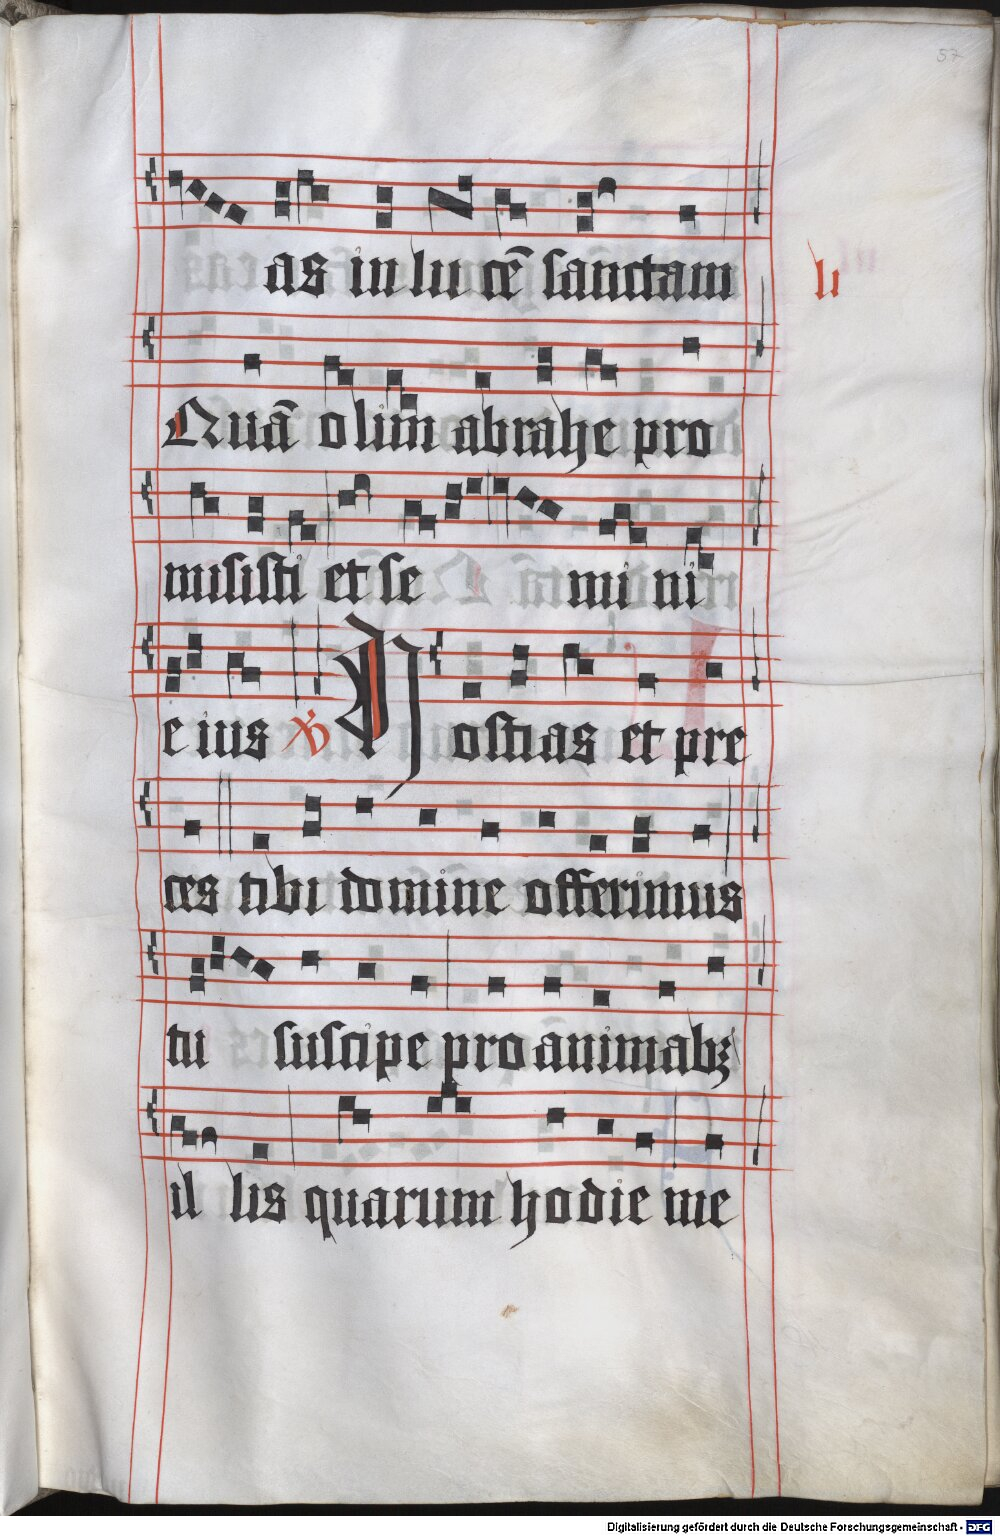 57
as in lu cē sanctam
li
Quā olim abrahe pro
misisti et se mi ni
e ius ℣ Hostias et pre
ces tibi domine offerimus
tu suscipe pro animabꝫ
il lis quarum hodie me
Digitalisierung gefördert durch die Deutsche Forschungsgemeinschaft - DFG